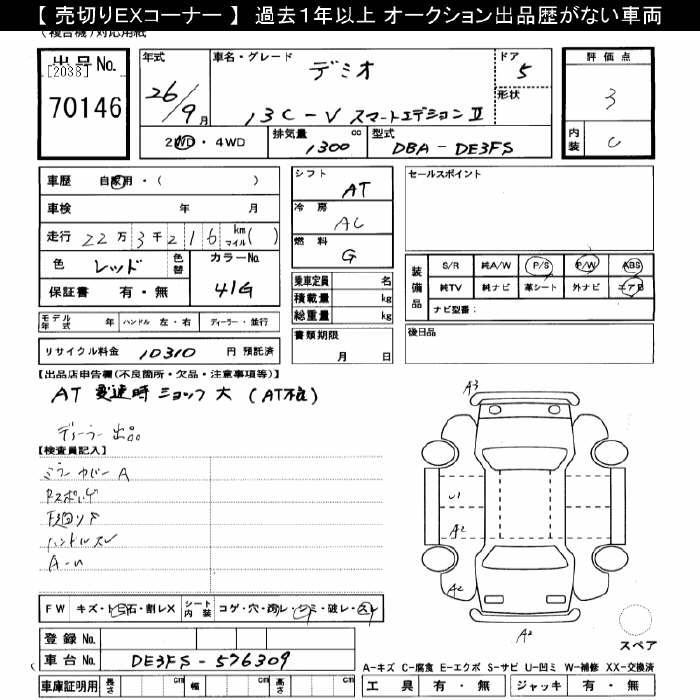 【 売切りEXコーナー 】 過去１年以上 オークション出品歴がない車両
(複合機)対応用紙
出品No.
[2038]
70146
年式
26/9月
車名・グレード
デミオ
13C-V スマートエディションⅡ
ドア
5
形状
評価点
3
内装
C
2WD・4WD
排気量 1300 cc
型式 DBA-DE3FS
車歴 自家用・( )
車検 年 月
走行 22万3千216 km マイル( )
色 レッド 色替
カラーNo. 41G
保証書 有・無
シフト AT
冷房 AC
燃料 G
乗車定員 名
積載量 kg
総重量 kg
セールスポイント
装備品
S/R 純A/W P/S P/W ABS
純TV 純ナビ 革シート 外ナビ エアB
ナビ型番:
モデル年式 年 ハンドル 左・右 ディーラー・並行
リサイクル料金 10310 円 預託済
書類期限
月 日
後日品
【出品店申告欄(不良箇所・欠品・注意事項等)】
AT 変速時 ショック 大 (AT不良)
ディーラー 出品
【検査員記入】
ミラーカバーA
下廻りサ
ハンドルスレ
A-U
A3
U1
A2
A2
A2
FW キズ・トビ石・割レX シート内装 コゲ・穴・切レ・シミ・破レ・スレ
登録No.
車台No. DE3FS-576309
スペア
A-キズ C-腐食 E-エクボ S-サビ U-凹ミ W-補修 XX-交換済
車庫証明用 長さ cm 幅 cm 高さ cm
工具 有・無 ジャッキ 有・無